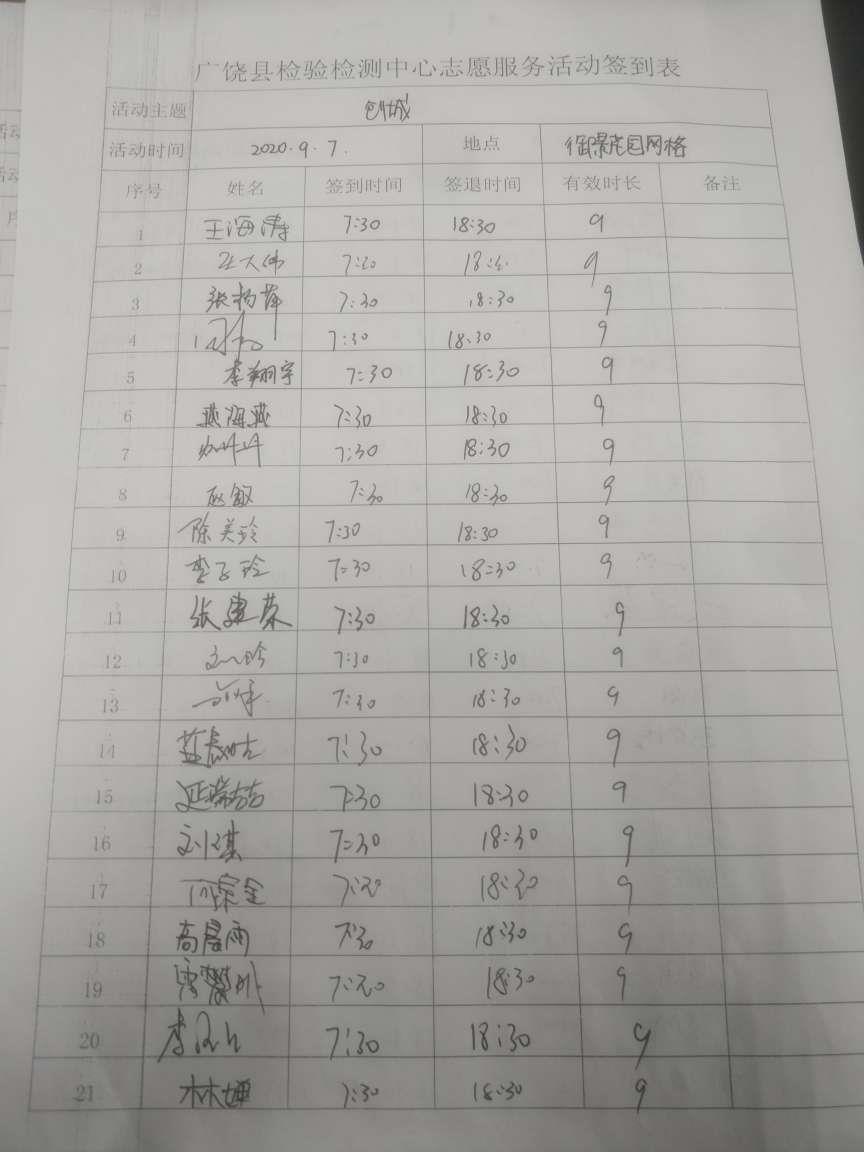 广饶县检验检测中心志愿服务活动签到表
活动主题 创城
活动时间 2020.9.7. 地点 御景花园网格
序号 姓名 签到时间 签退时间 有效时长 备注
1 王海涛 7:30 18:30 9
2 9
3 7:30 18:30 9
4 7:30 18:30 9
5 李翔宇 7:30 18:30 9
6 燕海燕 7:30 18:30 9
7 7:30 18:30 9
8 赵敏 7:30 18:30 9
9 陈美玲 7:30 18:30 9
10 7:30 18:30 9
11 张建荣 7:30 18:30 9
12 7:30 18:30 9
13 7:30 18:30 9
14 7:30 18:30 9
15 延瑞喆 7:30 18:30 9
16 7:30 18:30 9
17 18:30 9
18 高晨雨 7:30 18:30 9
19 18:30 9
20 7:30 18:30 9
21 7:30 18:30 9